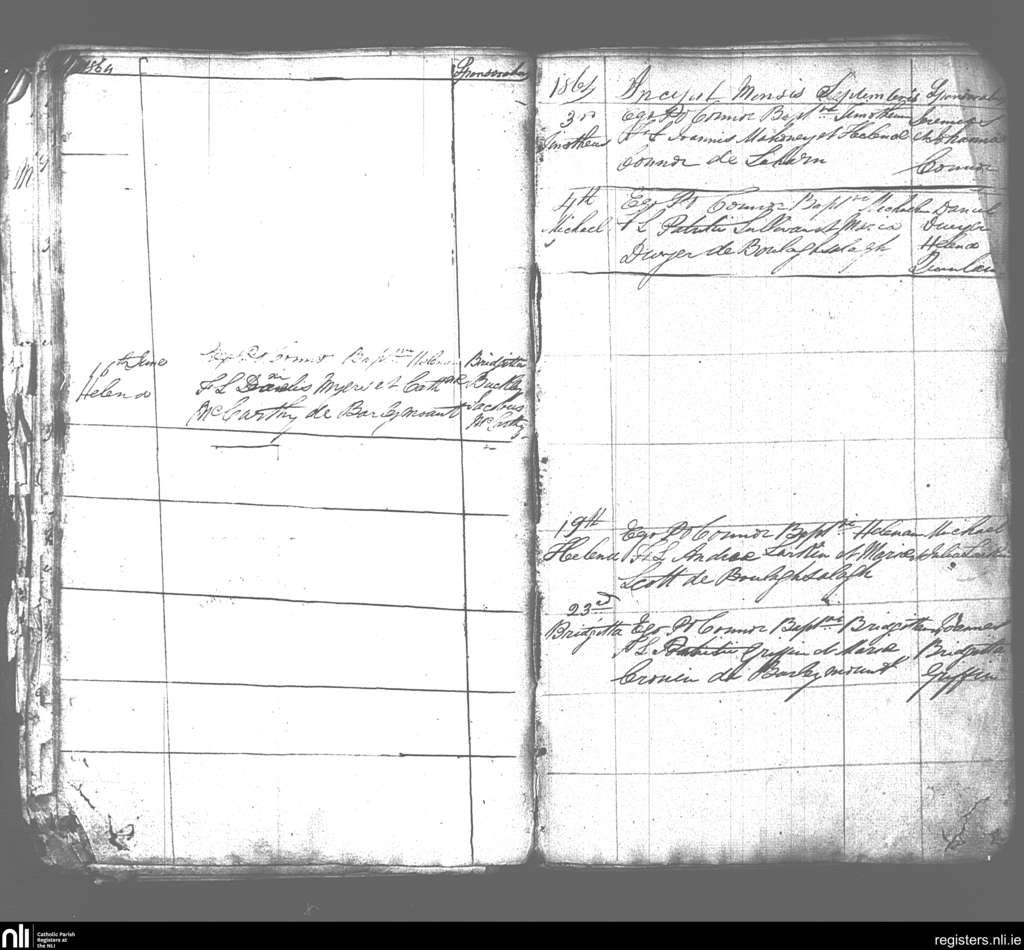 1864
Sponsoribus
16th June
Helena
Connor Bapt Helenam Bridgetta
F L Danielis Myers et Cath Buckley
McCarthy de Barleymount Jacobus
McCarthy
1864 Incipit Mensis Septembris Sponsoribus
3rd Ego P O Connor Bapt Timotheum Jeremias
Timotheus F L Joannis Mahoney et Helenae et Johanna
Connor de Connor
4th Ego P O Connor Bapt Michaelem Daniel
Michael F L Patritii Sullivan et Maria Dwyer
Dwyer de Helena
Quinlan
19th Ego P O Connor Bapt Helenam Michael
Helena F L Andreae Larkin et Mariae
Scott de
23rd
Bridgetta Ego P O Connor Bapt Bridgettam
F L Patritii Griffin et Mariae Bridgetta
Cronin de Barleymount Griffin
nli Catholic Parish
Registers at
the NLI
registers.nli.ie